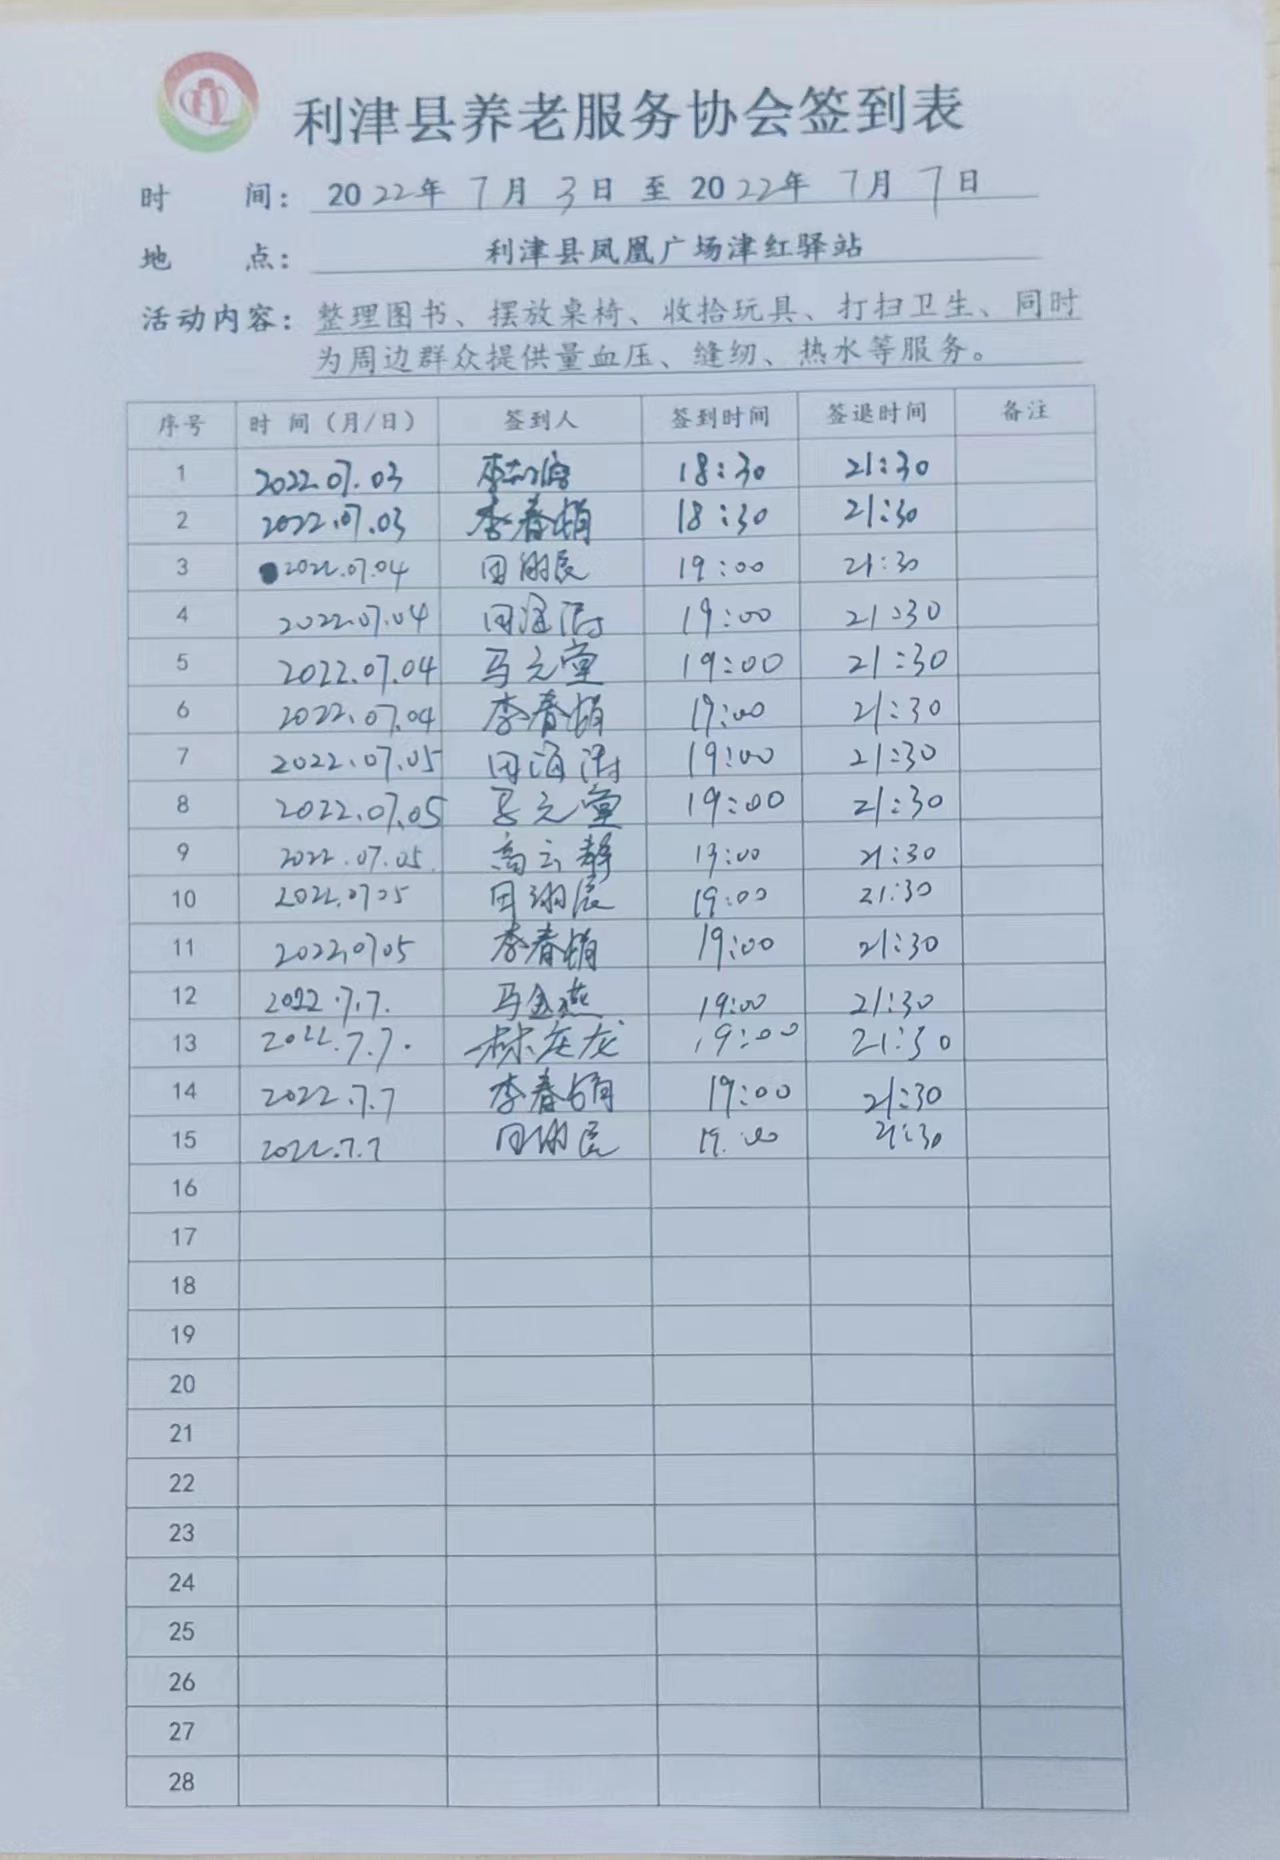 利津县养老服务协会签到表
时 间： 2022年 7月 3日 至 2022年 7月 7日
地 点： 利津县凤凰广场津红驿站
活动内容：整理图书、摆放桌椅、收拾玩具、打扫卫生、同时
为周边群众提供量血压、缝纫、热水等服务。
序号 时 间（月/日） 签到人 签到时间 签退时间 备注
1 2022.07.03 18:30 21:30
2 2022.07.03 李春娟 18:30 21:30
3 2022.07.04 田翊辰 19:00 21:30
4 2022.07.04 田海涛 19:00 21:30
5 2022.07.04 马元堂 19:00 21:30
6 2022.07.04 李春娟 19:00 21:30
7 2022.07.05 田海涛 19:00 21:30
8 2022.07.05 马元堂 19:00 21:30
9 2022.07.05. 高云静 19:00 21:30
10 2022.0705 田翊辰 19:00 21:30
11 2022.0705 李春娟 19:00 21:30
12 2022.7.7. 马金燕 19:00 21:30
13 2022.7.7. 林庆龙 19:00 21:30
14 2022.7.7 李春娟 19:00 21:30
15 2022.7.7 田翊辰 19:00 21:30
16
17
18
19
20
21
22
23
24
25
26
27
28